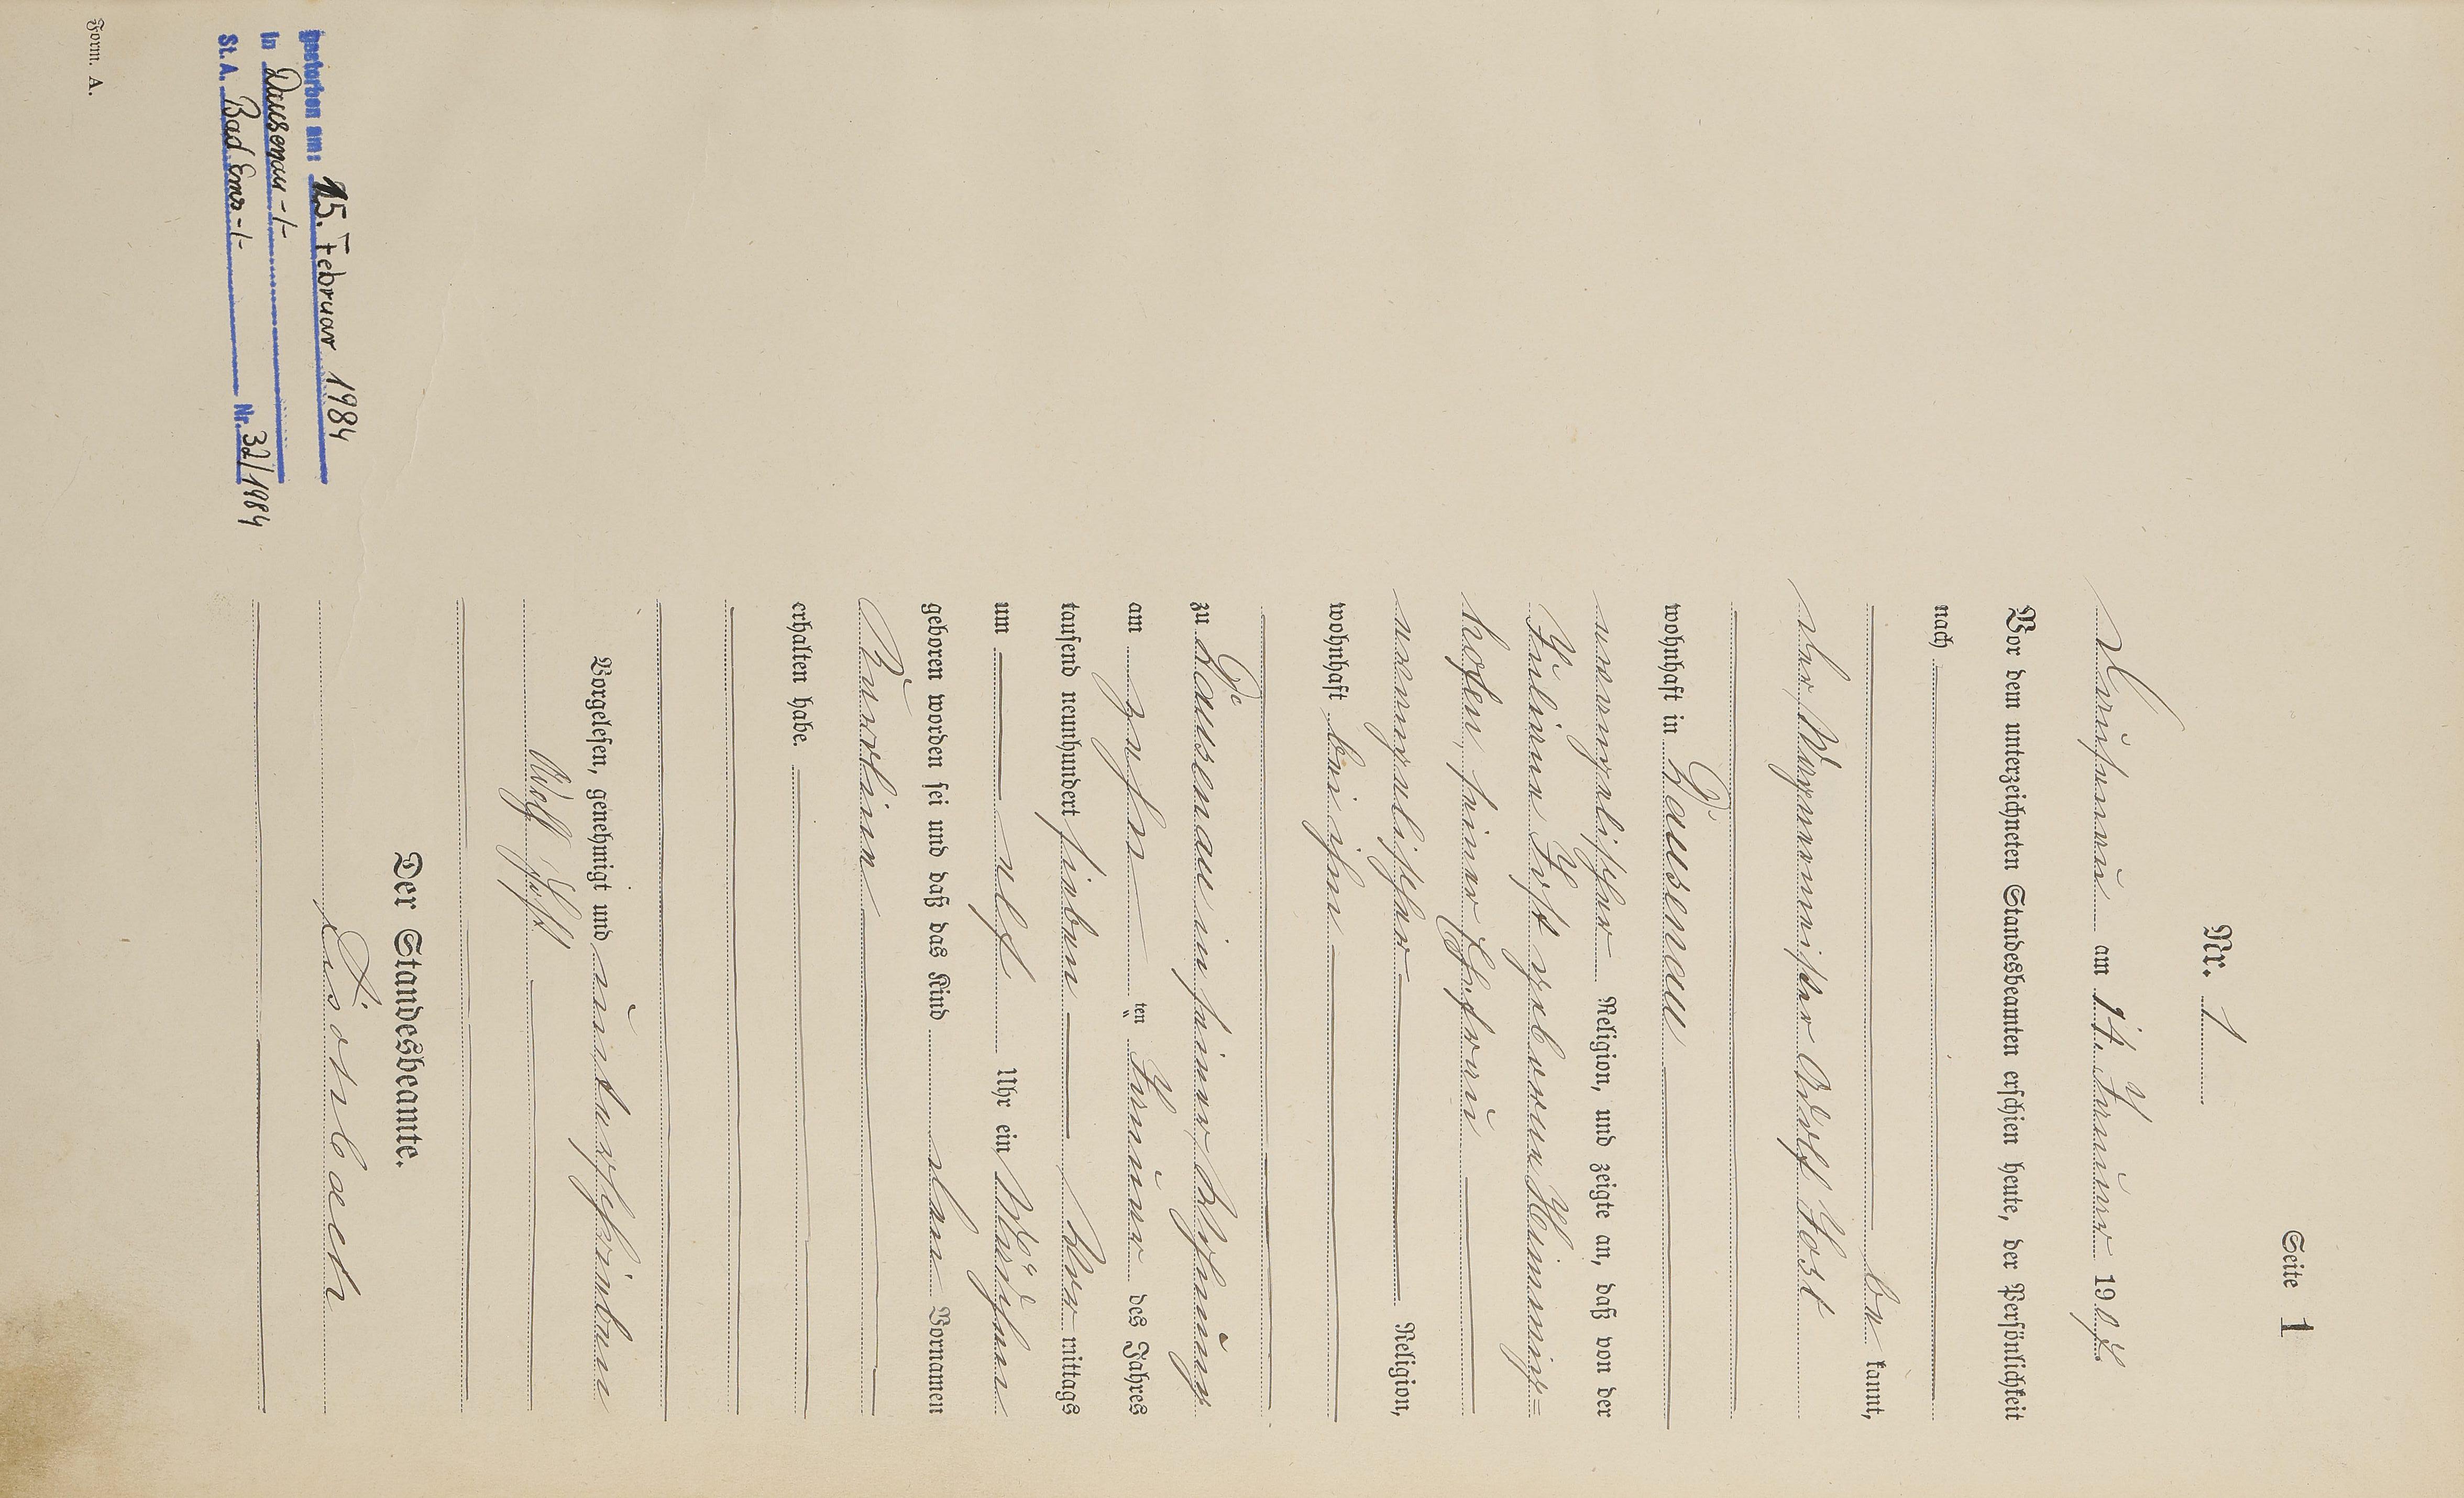 Seite 1
Nr. 1
Dausenau am 14. Januar 1907.
Vor dem unterzeichneten Standesbeamten erschien heute, der Persönlichkeit
nach
be kannt,
der Wagnermeister Adolf Jost
wohnhaft in Dausenau
evangelischer Religion, und zeigte an, daß von der
Juliane Jost geborene Heimnig=
hofen, seiner Ehefrau
evangelischer Religion,
wohnhaft bei ihm
zu Dausenau in seiner Wohnung
am zehn ten Januar des Jahres
tausend neunhundert sieben Vor mittags
um elf Uhr ein Mädchen
geboren worden sei und daß das Kind den Vornamen
Pauline
erhalten habe.
Vorgelesen, genehmigt und unterschrieben
Adolf Jost
Der Standesbeamte.
Linkenbach
gestorben am: 15. Februar 1984
in Dausenau -/-
St. A. Bad Ems -/- Nr. 32/1984
Form. A.